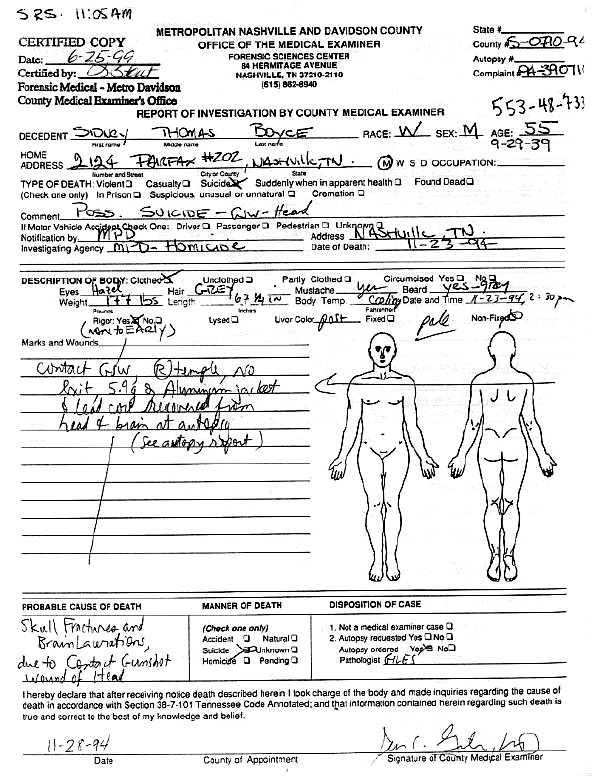 SRS. 11:05AM
METROPOLITAN NASHVILLE AND DAVIDSON COUNTY
OFFICE OF THE MEDICAL EXAMINER
FORENSIC SCIENCES CENTER
84 HERMITAGE AVENUE
NASHVILLE, TN 37210-2110
(615) 862-8940
CERTIFIED COPY
Date: 6-25-99
Certified by:
Forensic Medical - Metro Davidson
County Medical Examiner's Office
State #
County #
Autopsy #
Complaint
REPORT OF INVESTIGATION BY COUNTY MEDICAL EXAMINER
553-48-733
DECEDENT SIDNEY THOMAS BOYCE RACE: W SEX: M AGE: 55
First name Middle name Last name 9-29-39
HOME
ADDRESS 2124 FAIRFAX #202, NASHVILLE, TN. M W S D OCCUPATION:
Number and Street City or County State
TYPE OF DEATH: Violent Casualty Suicide Suddenly when in apparent health Found Dead
(Check one only) In Prison Suspicious unusual or unnatural Cremation
Comment Poss. SUICIDE - GW - Head
If Motor Vehicle Accident Check One: Driver Passenger Pedestrian Unknown
Notification by MPD Address NASHVILLE, TN.
Investigating Agency MPD - HOMICIDE Date of Death: 11-23-94
DESCRIPTION OF BODY: Clothed Unclothed Partly Clothed Circumcised Yes No
Eyes Hazel Hair GREY Mustache yes Beard yes-gray
Weight 177 lbs Length 67 ¼ IN Body Temp. Cooling Date and Time 11-23-94, 2:30 pm
Pounds Inches Fahrenheit
Rigor: Yes No Lysed Livor Color post Fixed pale Non-Fixed
(non to EARLY)
Marks and Wounds
Contact GSW (R) temple, no
exit, 5.9g & Aluminum jacket
& lead core recovered from
head & brain at autopsy
(see autopsy report)
PROBABLE CAUSE OF DEATH
Skull Fractures and
Brain Lacerations,
due to Contact Gunshot
Wound of Head
MANNER OF DEATH
(Check one only)
Accident Natural
Suicide Unknown
Homicide Pending
DISPOSITION OF CASE
1. Not a medical examiner case
2. Autopsy requested Yes No
Autopsy ordered Yes No
Pathologist GILES
I hereby declare that after receiving notice death described herein I took charge of the body and made inquiries regarding the cause of
death in accordance with Section 38-7-101 Tennessee Code Annotated; and that information contained herein regarding such death is
true and correct to the best of my knowledge and belief.
11-28-94
Date County of Appointment Signature of County Medical Examiner